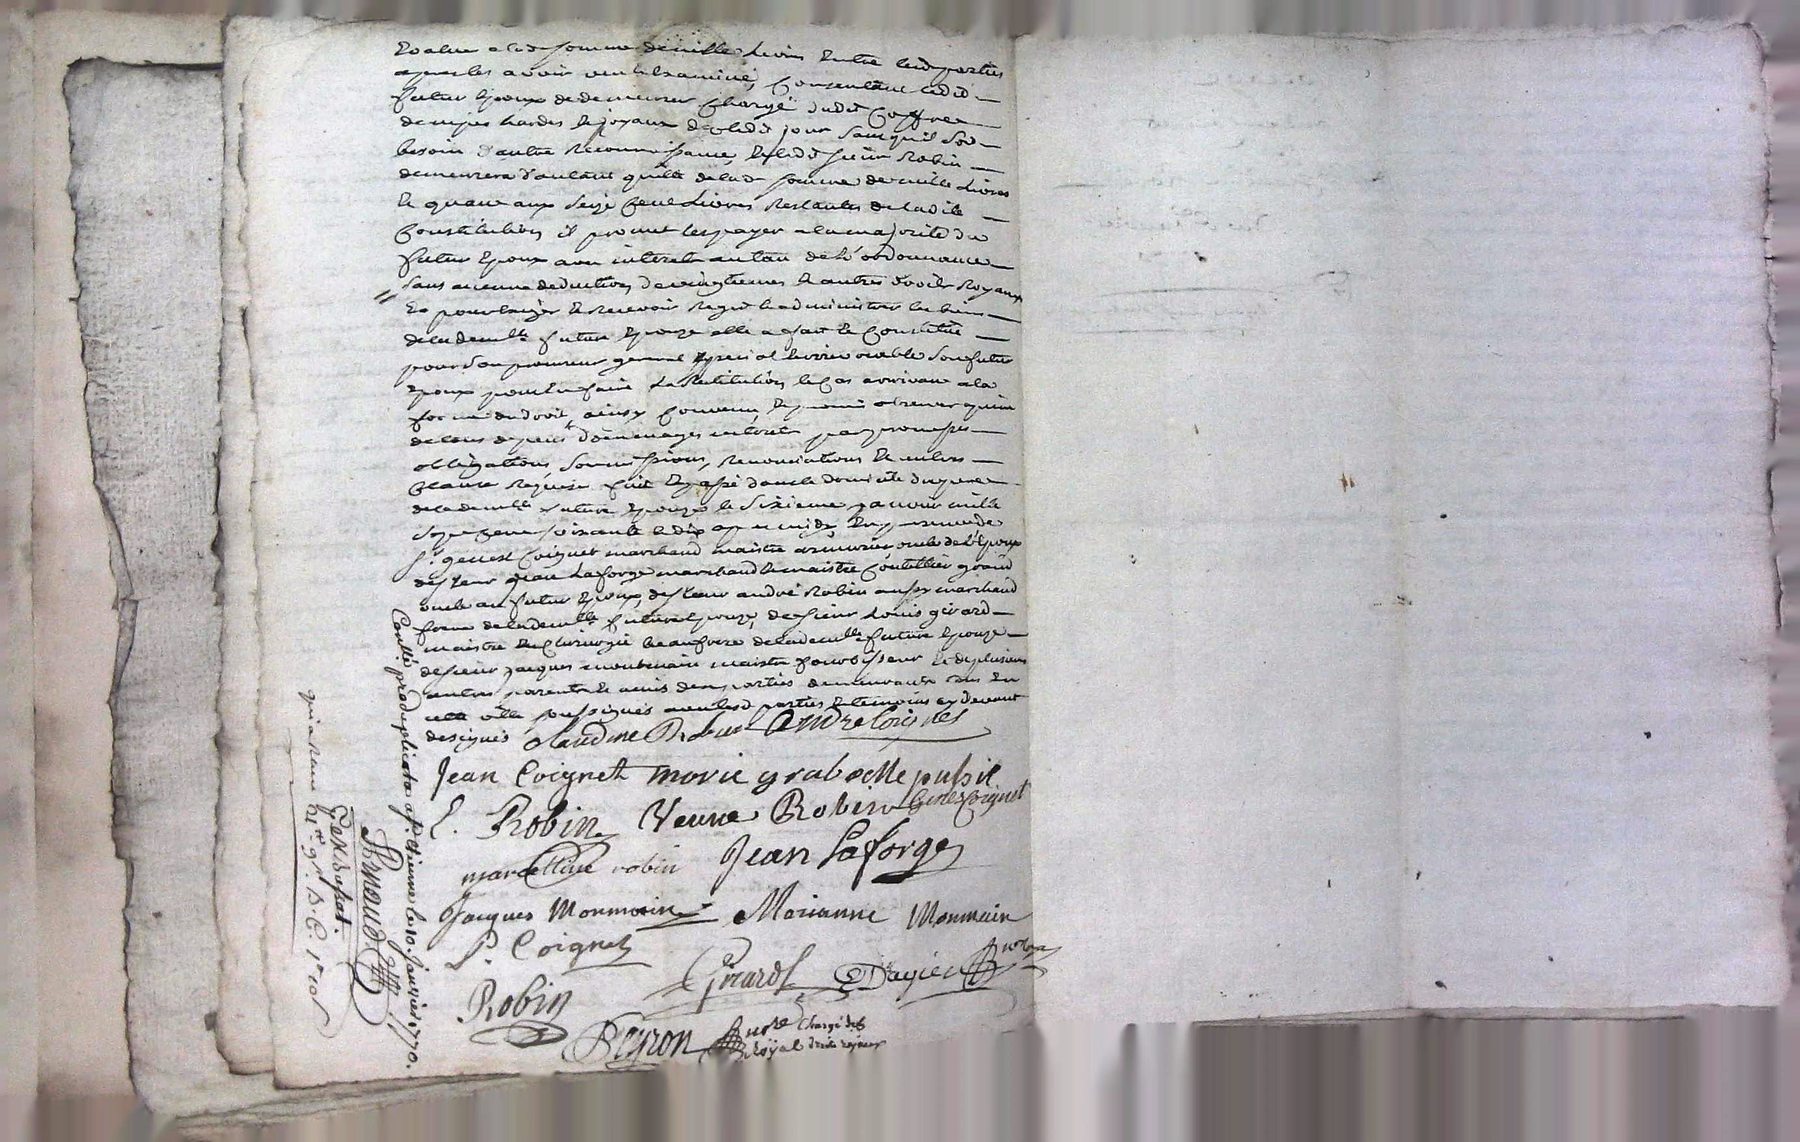 Evalué a la somme de mille Livres Entre lesd parties
apres les avoir vu et Examiné, Consentant ledit
futur Epoux de demeurer Chargé dudit Coffre
nipes hardes et joyaux des ledit jour sans quil soit
besoin d'autre Reconnoissance, et ledit sieur Robin
demeurera d'autant quitte de lad somme de mille Livres
Et quant aux seize Cent Livres Restantes de ladite
Constitution il promet les payer a la majorité du
futur Epoux avec interets au taux de L'ordonnance
sans aucune deduction de vingtiemes et autres droits Royaux
Et pour exiger et Recevoir Regir et administrer les biens
de lad demlle future Epouze elle a fait et Constitué
pour son procureur general special et irrevocable son futur
Epoux pour En faire La Restitution le Cas arrivant a la
forme du droit, ainsy Convenu, et promis observer a peine
de tous depens domenages interets par promesses
obligations, soumissions, Renonciations et autres
Clauses Requises fait et passé dans le domicile du pere
de la demlle future Epouze le sixieme janvier mille
sept cent soixante et dix apres midy En presence de
sr genest Coignet marchand maitre armurier oncle de L'Epoux
de sieur jean Laforge marchand et maitre Coutellier grand
oncle au futur Epoux, de sieur andré Robin aussy marchand
frere de lademlle future Epouze, de sieur Louis girard
maistre En Chirurgie beaufrere de lademlle future Epouze
de sieur jacques monmain maitre fourbisseur et de plusieurs
autres parents et amis des parties demeurants tous En
cette ville soussignés avec lesd parties et temoins cy devant
designés Claudine Robin André Coignet
Jean Coignet marie
L. Robin Veuve Robin Genest Coignet
marcelline robin Jean Laforge
Jacques Monmain Marianne Monmain
P. Coignet Girard
Robin
Peyron Royal chargé des
Conllé pr duplicata a St. Etienne le 10. Janvier 1770.
Arnaud